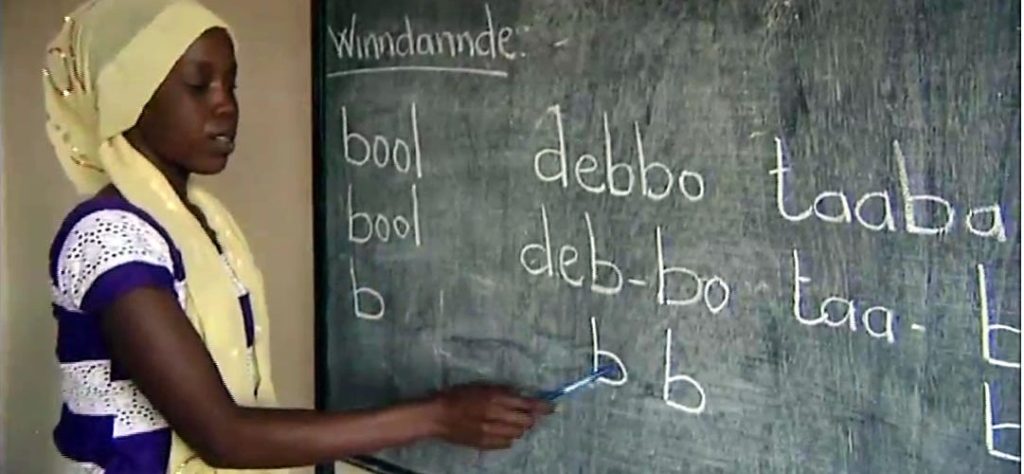 Winndannde: -
bool debbo taaba
bool deb-bo taa- b
b b b b